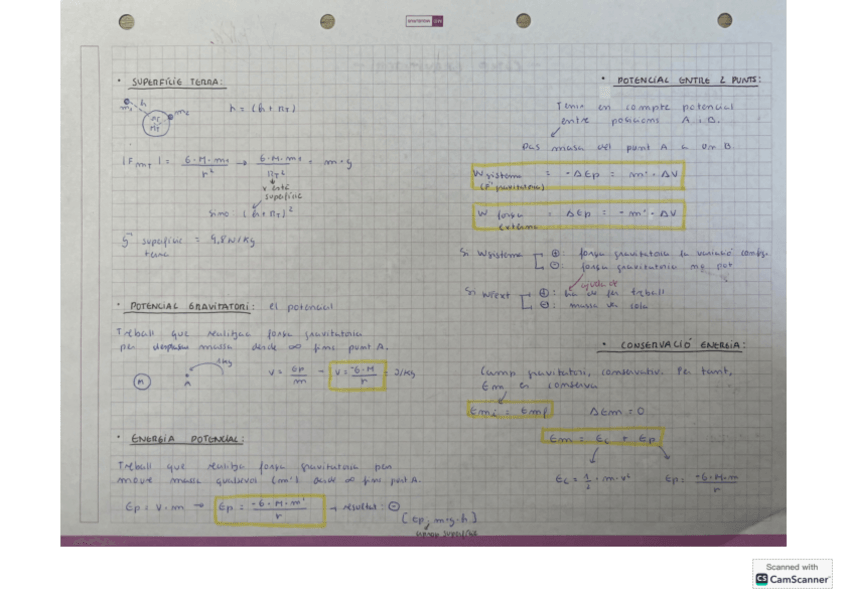 • SUPERFÍCIE TERRA:
h
m₁
m₂
h = (h + RT)
|FmT| = G·M·m₁ / r² → G·M·m₁ / RT² = m·g
superfície
sino (h + RT)²
g superfície terra = 9.8 N/Kg
• POTENCIAL GRAVITATORI: el potencial
Treball que realitza força gravitatòria
per desplaçar massa desde ∞ fins punt A.
1Kg
M
A
V = Ep / m → V = -G·M / r J/Kg
• ENERGIA POTENCIAL:
Treball que realitza força gravitatòria per
moure massa qualsevol (m') desde ∞ fins punt A.
Ep = V·m → Ep = -G·M·m' / r → resultat: ⊖
(Ep: m·g·h)
superfície
• POTENCIAL ENTRE 2 PUNTS:
Tenir en compte potencial
entre posicions A i B.
pas massa del punt A a un B.
W sistema = -ΔEp = m'·ΔV
(F gravitatòria)
W força = ΔEp = -m'·ΔV
externa
Si Wsistema ⊕: força gravitatòria fa variació
⊖: força gravitatòria no pot
ajuda
Si Wext ⊕: ha de fer treball
⊖: massa va sola
• CONSERVACIÓ ENERGIA:
Camp gravitatori, conservatiu. Per tant,
Em es conserva
Emi = Emf ΔEm = 0
Em = Ec + Ep
Ec = 1/2 · m · v² Ep = -G·M·m / r
Scanned with
CS CamScanner